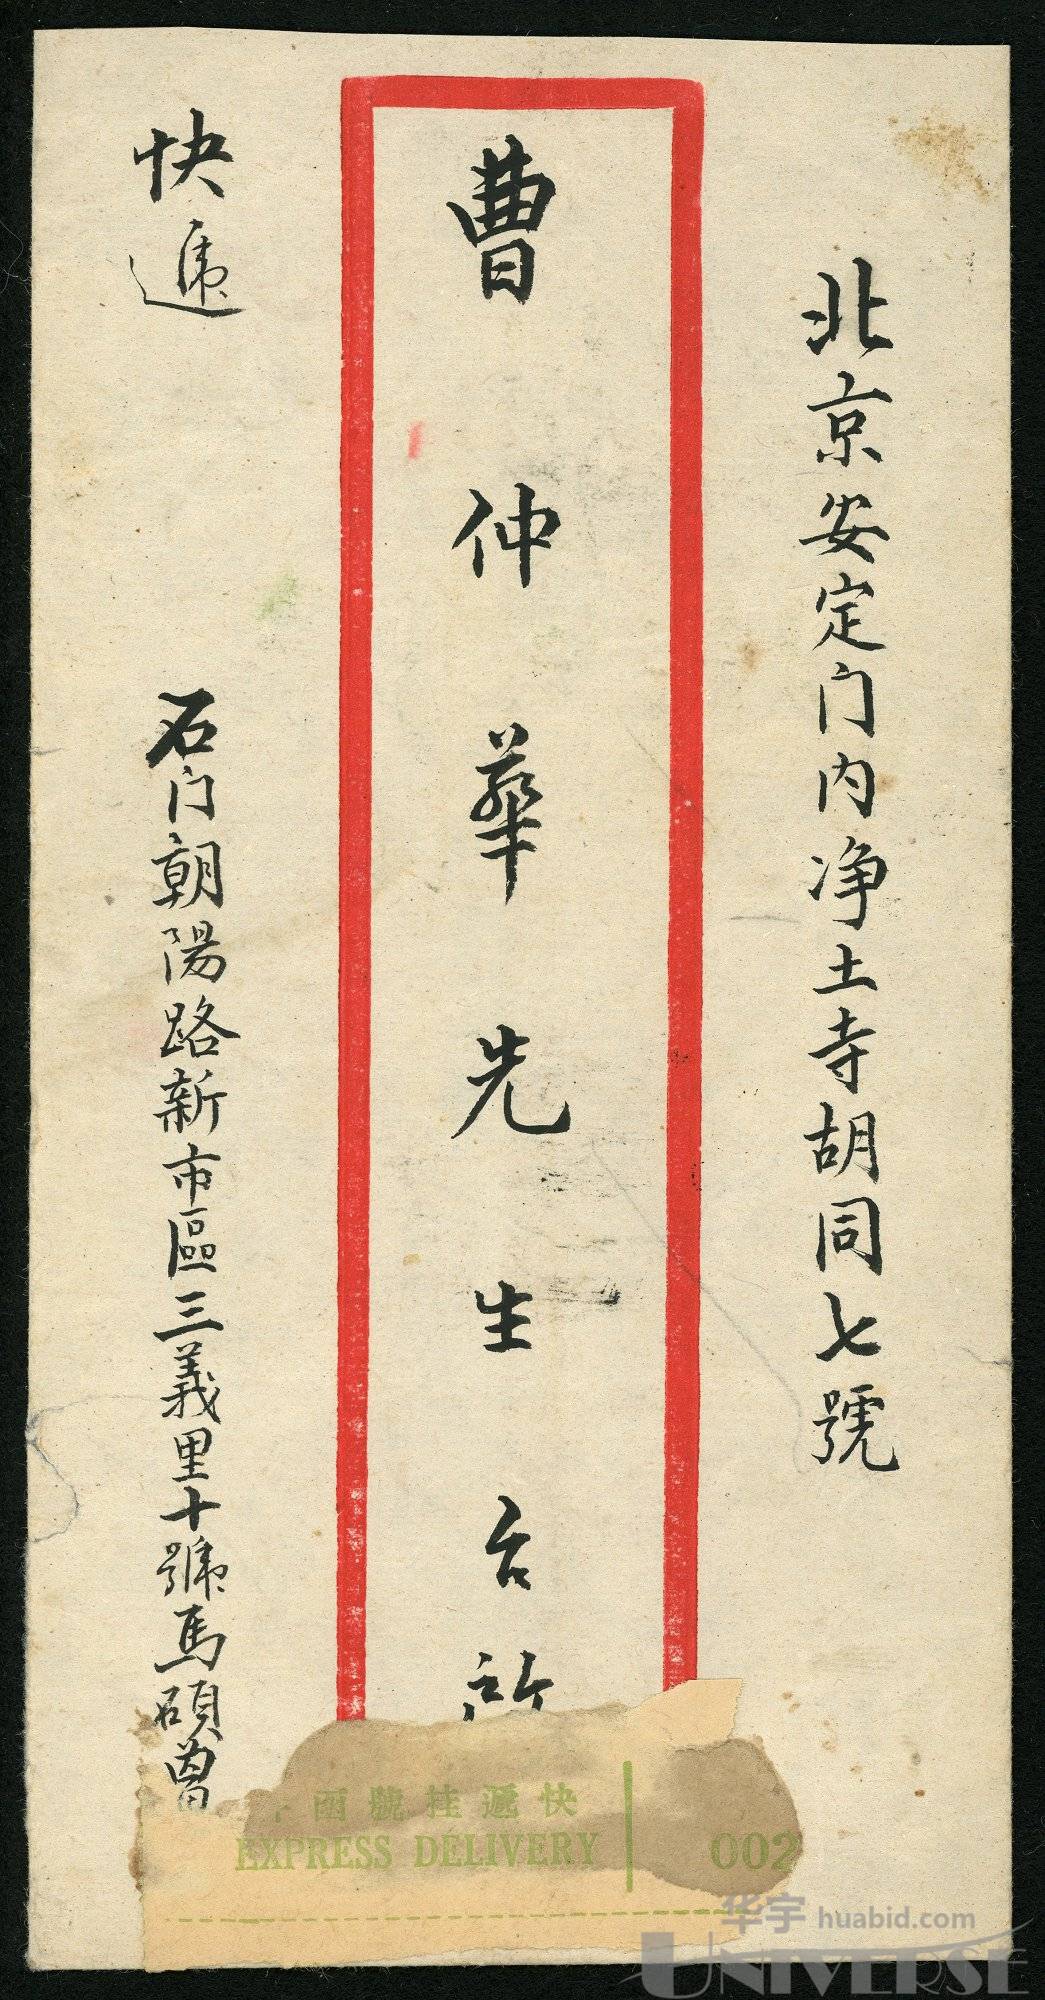 北京安定门内净土寺胡同七號
曹仲華先生台啟
快遞
石门朝陽路新市區三義里十號馬碩曾
快遞挂號函件
EXPRESS DELIVERY
002
华宇 huabid.com
UNIVERSE